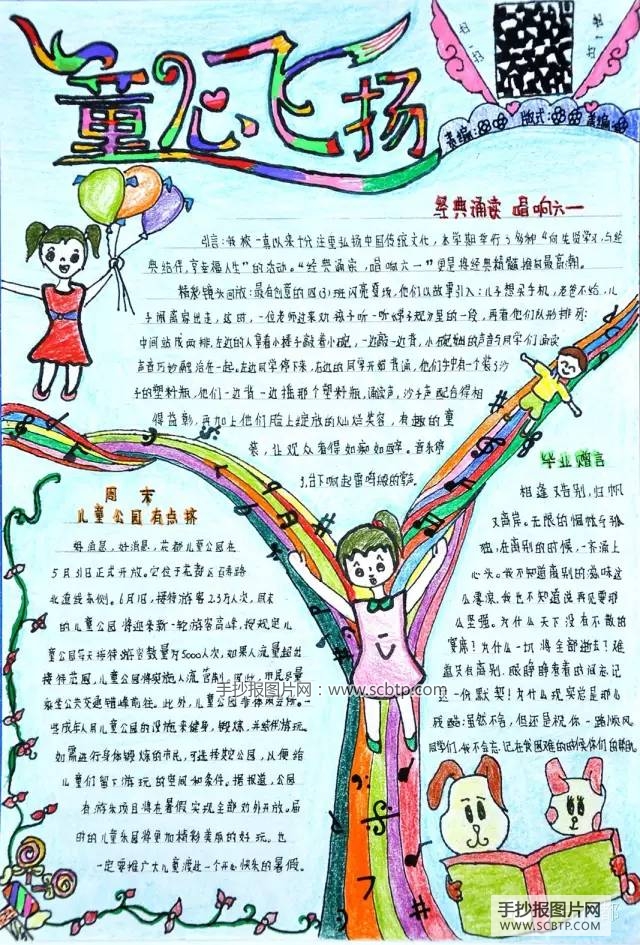 童心飞扬
扫一扫
责编: 版式: 美编:
经典诵读 唱响六一
引言:我校一直以来十分注重弘扬中国传统文化,本学期举行了多种“向先贤学习,与经
典结伴,享幸福人生”的活动。“经典诵读,唱响六一”更是将经典精髓推向最高潮。
精彩镜头回放:最有创意的四(3)班闪亮登场,他们以故事引入:儿子想买手机,老爸不给,儿
子闹离家出走,这时,一位老师过来劝孩子听一听《弟子规》里的一段,再看他们队形排列:
中间站成两排,左边的人拿着小棒子敲着小碗,一边敲一边背,小碗的声音与同学们诵读
声音巧妙融洽在一起。左边同学停下来,右边的同学开始背诵,他们手中有一个装了沙
子的塑料瓶,他们一边背一边摇那个塑料瓶,诵读声,沙子声配合得相
得益彰,再加上他们脸上绽放的灿烂笑容,有趣的童
装,让观众看得如痴如醉。音乐停
了,台下响起雷鸣般的掌声。
毕业赠言
相逢又告别,归帆
又离岸。无限的惆怅与孤
独,在离别的时候,一齐涌上
心头。我不知道离别的滋味这
么凄凉,我也不知道说再见要那
么坚强。为什么天下没有不散的
宴席?为什么一切将全部逝去?难
道只有离别,眼睁睁看着时间忘记
这一份默契!为什么现实总是那么
残酷:虽然不舍,但还是祝你一路顺风
同学们,我不会忘记在我困难的时候你们的帮助。
周末
儿童公园有点挤
好消息,好消息,花都儿童公园在
5月31日正式开放。定位于花都区百寿路
北延线东侧。6月1日,接待游客2.3万人次,周末
的儿童公园将迎来新一轮游客高峰,按规定儿
童公园每天接待游客数量为5000人次,如果人流量超出
接待范围,儿童公园将实施人流管制。因此,市民尽量
乘坐公共交通错峰前往。此外,儿童公园
些成年人用儿童公园的设施来健身,锻炼,并
如需进行身体锻炼的市民,可选择其它公园,以便给
儿童们留下游玩的空间和条件。据报道,公园
有游乐项目将在暑假实现全部对外开放。届
时的儿童乐园将更加精彩美丽的好玩。也
一定要推广大儿童渡此一个开心快乐的暑假。
手抄报图片网:www.scbtp.com
手抄报图片网
SCBTP.COM